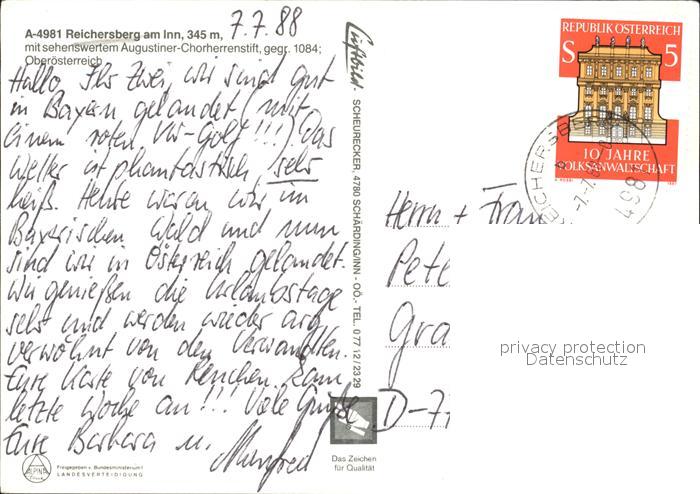 7.7.88
A-4981 Reichersberg am Inn, 345 m,
mit sehenswertem Augustiner-Chorherrenstift, gegr. 1084;
Oberösterreich
Hallo Ihr Zwei, wir sind gut
in Bayern gelandet (mit
einem roten VW-Golf!!!) Das
Wetter ist phantastisch, sehr
heiß. Heute waren wir im
Bayerischen Wald und nun
sind wir in Österreich gelandet.
Wir genießen die Urlaubstage
sehr und werden wieder arg
verwöhnt von den Verwandten.
Eure Karte von Renchen kam
letzte Woche an!!! Viele Grüße
Eure Barbara u. Manfred
ALPINA
Freigegeben v. Bundesministerium f.
LANDESVERTEIDIGUNG
Luftbild
SCHEURECKER, 4780 SCHÄRDING/INN - OÖ. - TEL. 0 77 12 / 23 29
Das Zeichen
für Qualität
REPUBLIK ÖSTERREICH
S 5
10 JAHRE
VOLKSANWALTSCHAFT
1987
Herrn + Frau
Pete
Gra
D-7
privacy protection
Datenschutz